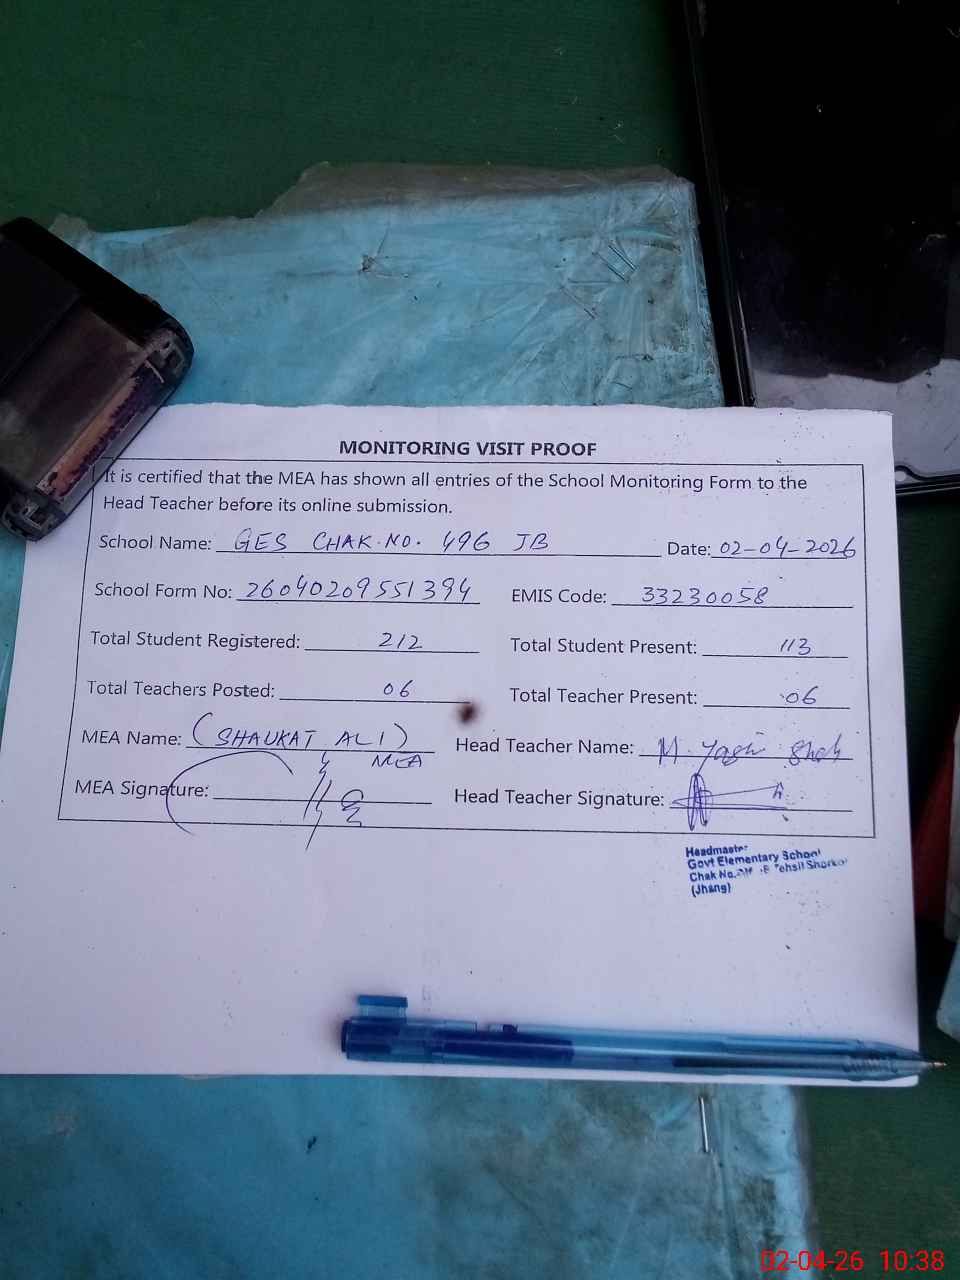 MONITORING VISIT PROOF
It is certified that the MEA has shown all entries of the School Monitoring Form to the
Head Teacher before its online submission.
School Name: GES CHAK.NO. 496 JB Date: 02-04-2026
School Form No: 26040209551394 EMIS Code: 33230058
Total Student Registered: 212 Total Student Present: 113
Total Teachers Posted: 06 Total Teacher Present: 06
MEA Name: (SHAUKAT ALI) Head Teacher Name: M. Shah
MEA
MEA Signature: Head Teacher Signature:
Headmaster
Govt Elementary School
Chak No. Tehsil Shorkot
(Jhang)
02-04-26 10:38